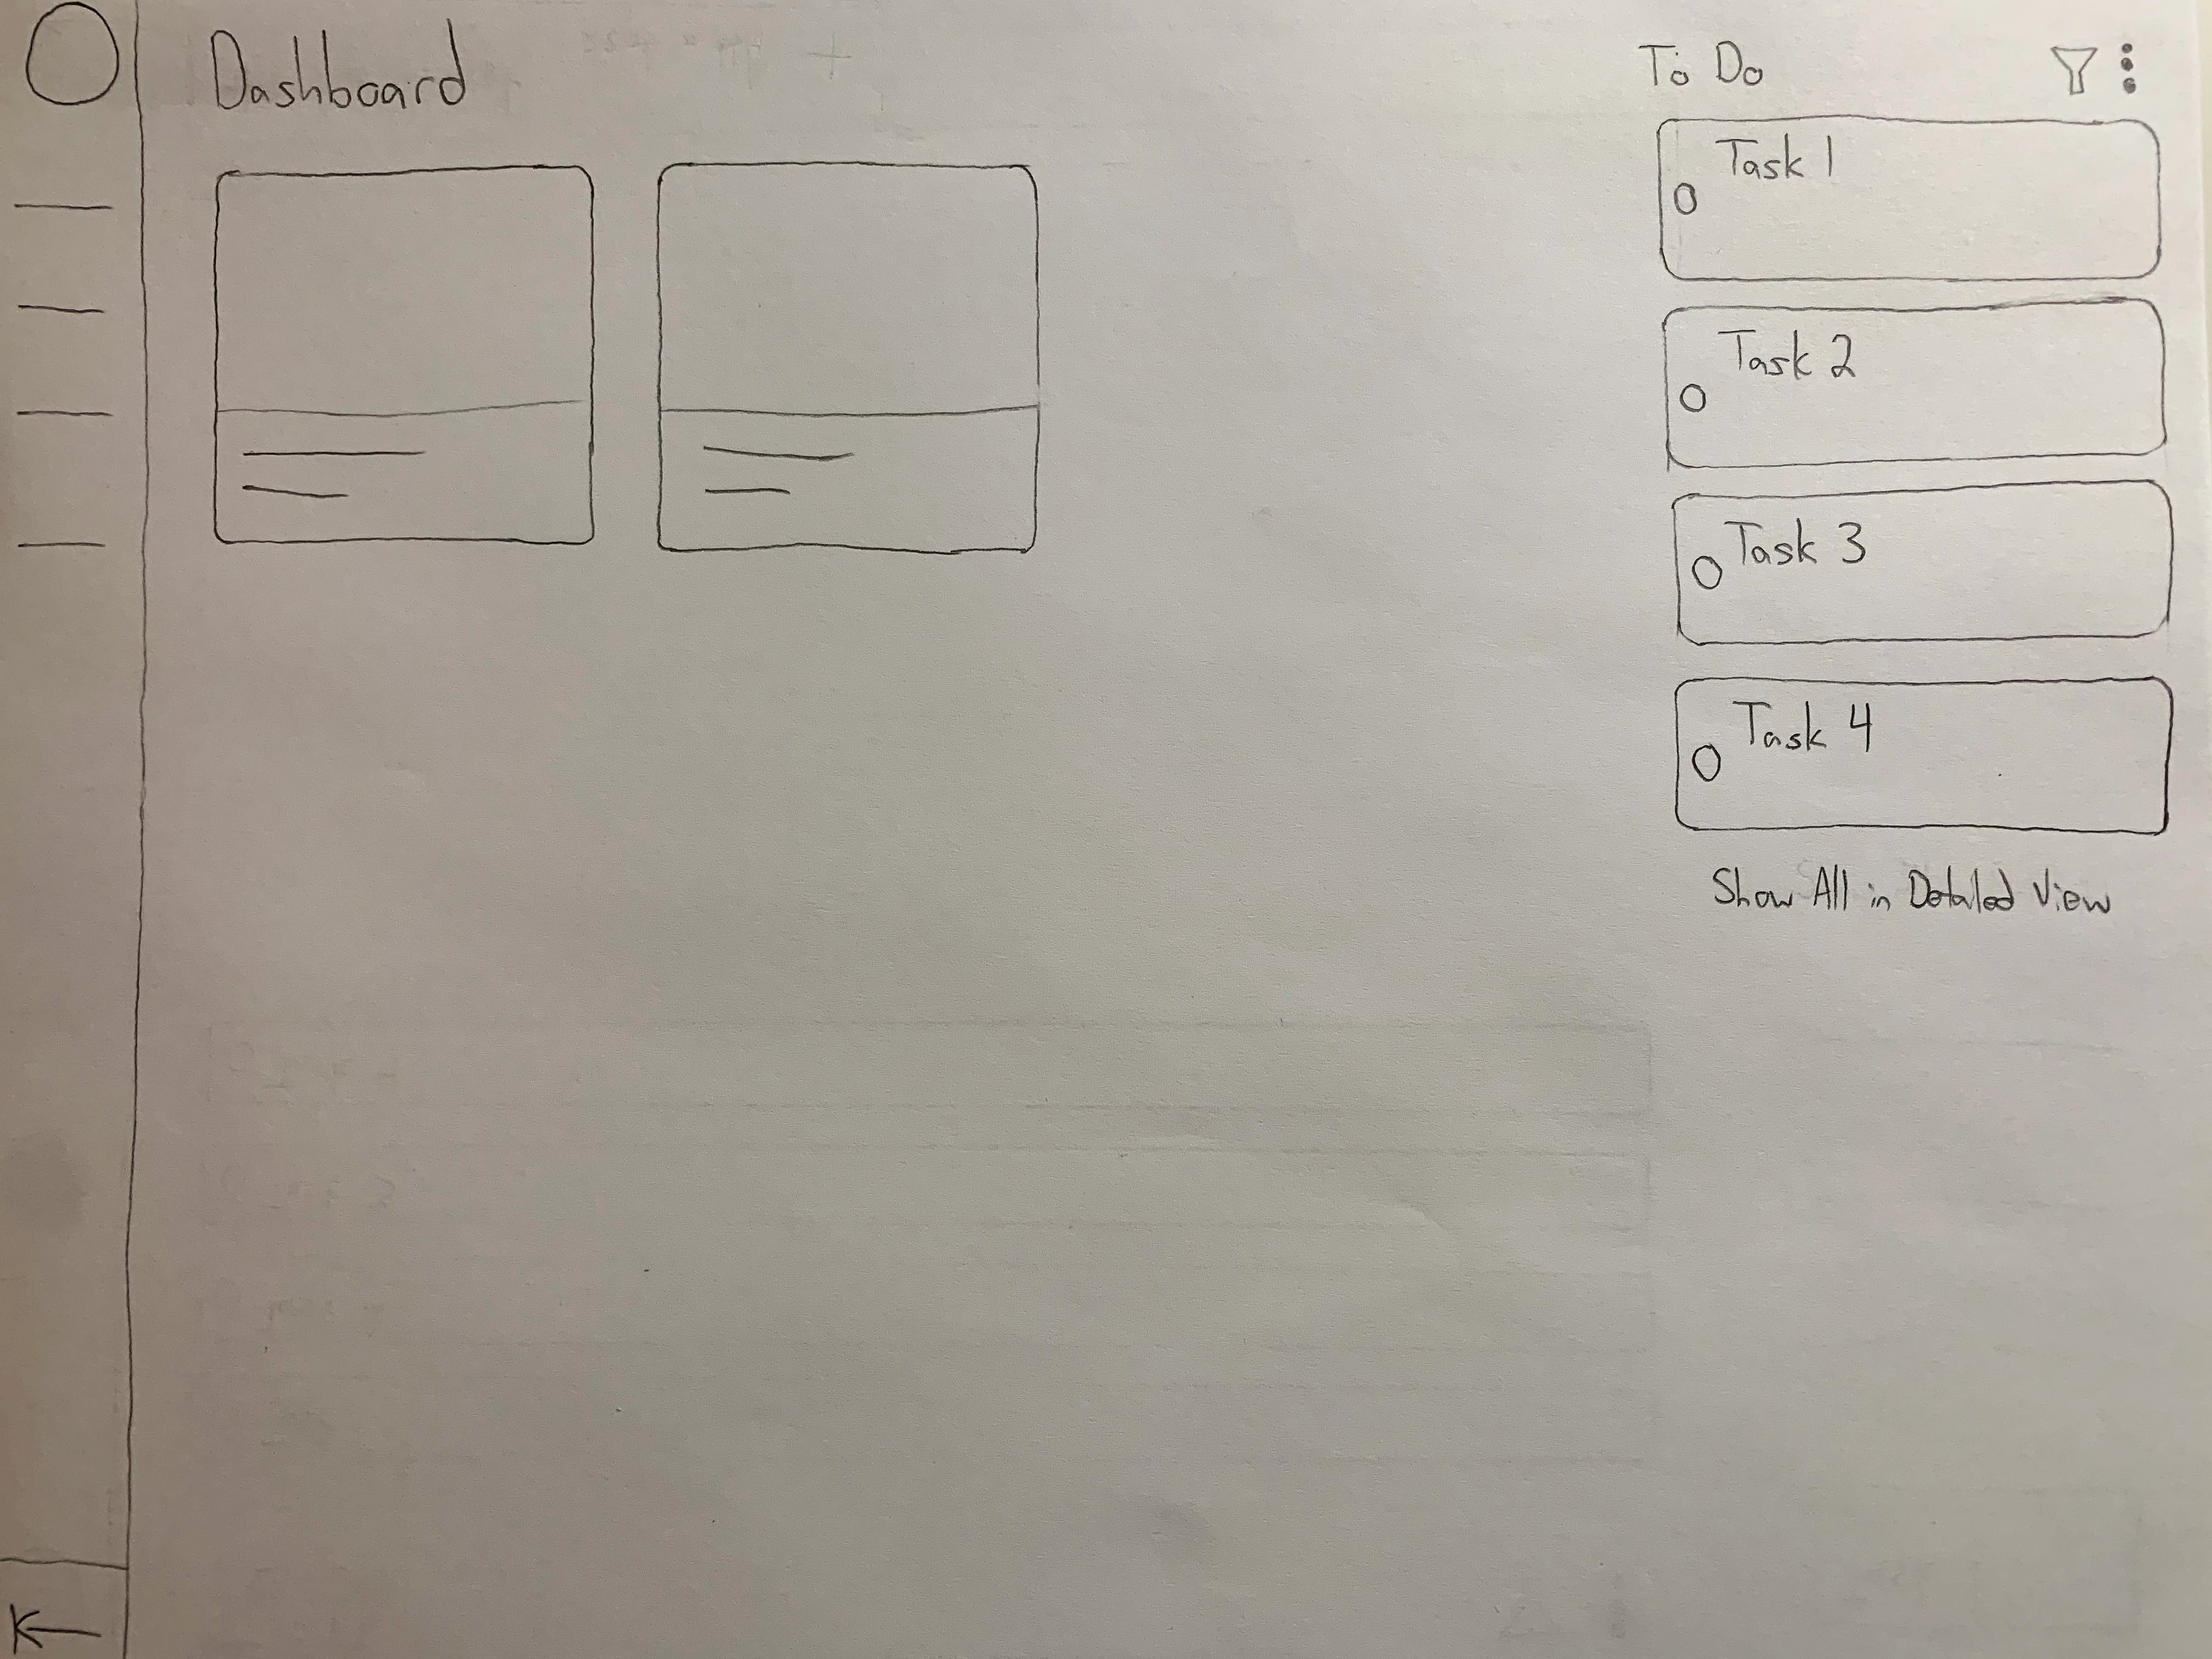 Dashboard
To Do
Task 1
Task 2
Task 3
Task 4
Show All in Detailed View